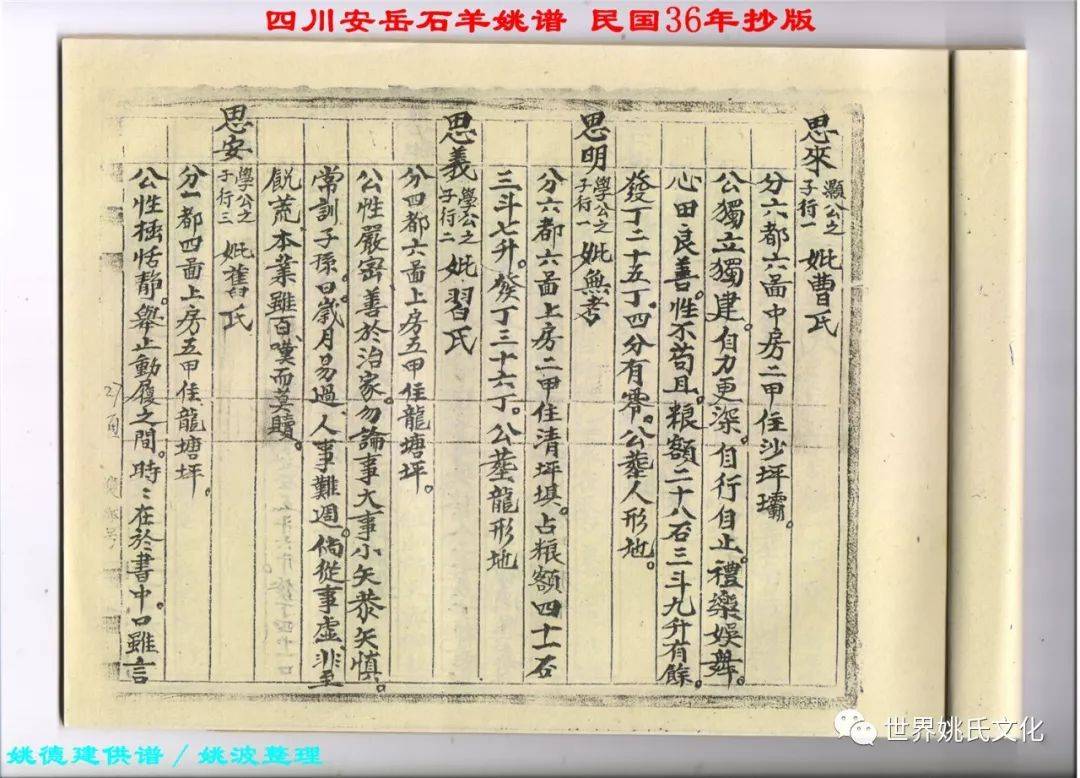 四川安岳石羊姚谱 民国36年抄版
思來 灝公之子行一 妣曹氏
分六都六啚中房二甲住沙坪壩。
公獨立獨建。自力更深。自行自止。禮樂娛舞。
心田良善。性不苟且。粮額二十八石三斗九升有餘。
發丁二十五丁。四分有零。公墓人形地。
思明 學公之子行一 妣無考
分六都六啚上房二甲住清坪埧。占粮額四十一石
三斗七升。發丁三十六丁。公墓龍形地
思義 學公之子行二 妣習氏
分四都六啚上房五甲住龍塘坪。
公性嚴密善於治家。勿論事大事小矢恭矢慎。
常訓子孫。曰。歲月易過、人事難週。倘從事虛非至
飢荒、本業雖百嘆而莫贖。
思安 學公之子行三 妣舊氏
分一都四啚上房五甲住龍塘坪。
公性極恬静。舉止動履之間。時:在於書中。口雖言
姚德建供谱/姚波整理
世界姚氏文化